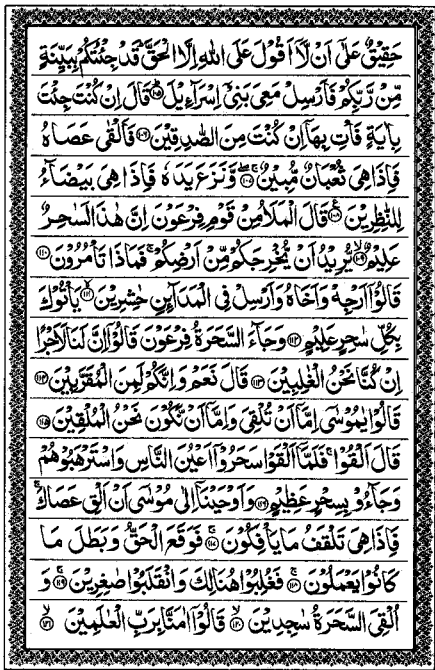 حَقِيْقٌ عَلٰٓى اَنْ لَّاۤ اَقُوْلَ عَلَى اللّٰهِ اِلَّا الْحَقَّ ؕ قَدْ جِئْتُكُمْ بِبَيِّنَةٍ
مِّنْ رَّبِّكُمْ فَاَرْسِلْ مَعِىَ بَنِىْۤ اِسْرَآءِيْلَ ؕ﴿۱۰۵﴾ قَالَ اِنْ كُنْتَ جِئْتَ
بِاٰيَةٍ فَاْتِ بِهَاۤ اِنْ كُنْتَ مِنَ الصّٰدِقِيْنَ ﴿۱۰۶﴾ فَاَلْقٰى عَصَاهُ
فَاِذَا هِىَ ثُعْبَانٌ مُّبِيْنٌ ۚۖ﴿۱۰۷﴾ وَّنَزَعَ يَدَهٗ فَاِذَا هِىَ بَيْضَآءُ
لِلنّٰظِرِيْنَ ﴿۱۰۸﴾ قَالَ الْمَلَاُ مِنْ قَوْمِ فِرْعَوْنَ اِنَّ هٰذَا لَسٰحِرٌ
عَلِيْمٌ ۙ﴿۱۰۹﴾ يُّرِيْدُ اَنْ يُّخْرِجَكُمْ مِّنْ اَرْضِكُمْ ۚ فَمَاذَا تَاْمُرُوْنَ ﴿۱۱۰﴾
قَالُوْۤا اَرْجِهْ وَاَخَاهُ وَاَرْسِلْ فِى الْمَدَآئِنِ حٰشِرِيْنَ ۙ﴿۱۱۱﴾ يَاْتُوْكَ
بِكُلِّ سٰحِرٍ عَلِيْمٍ ﴿۱۱۲﴾ وَجَآءَ السَّحَرَةُ فِرْعَوْنَ قَالُوْۤا اِنَّ لَنَا لَاَجْرًا
اِنْ كُنَّا نَحْنُ الْغٰلِبِيْنَ ﴿۱۱۳﴾ قَالَ نَعَمْ وَاِنَّكُمْ لَمِنَ الْمُقَرَّبِيْنَ ﴿۱۱۴﴾
قَالُوْا يٰمُوْسٰۤى اِمَّاۤ اَنْ تُلْقِىَ وَاِمَّاۤ اَنْ نَّكُوْنَ نَحْنُ الْمُلْقِيْنَ ﴿۱۱۵﴾
قَالَ اَلْقُوْا ۚ فَلَمَّاۤ اَلْقَوْا سَحَرُوْۤا اَعْيُنَ النَّاسِ وَاسْتَرْهَبُوْهُمْ
وَجَآءُوْ بِسِحْرٍ عَظِيْمٍ ﴿۱۱۶﴾ وَاَوْحَيْنَاۤ اِلٰى مُوْسٰٓى اَنْ اَلْقِ عَصَاكَ ۚ
فَاِذَا هِىَ تَلْقَفُ مَا يَاْفِكُوْنَ ۚ﴿۱۱۷﴾ فَوَقَعَ الْحَقُّ وَبَطَلَ مَا
كَانُوْا يَعْمَلُوْنَ ۚ﴿۱۱۸﴾ فَغُلِبُوْا هُنَالِكَ وَانْقَلَبُوْا صٰغِرِيْنَ ۚ﴿۱۱۹﴾ وَ
اُلْقِىَ السَّحَرَةُ سٰجِدِيْنَ ۙ﴿۱۲۰﴾ قَالُوْۤا اٰمَنَّا بِرَبِّ الْعٰلَمِيْنَ ۙ﴿۱۲۱﴾